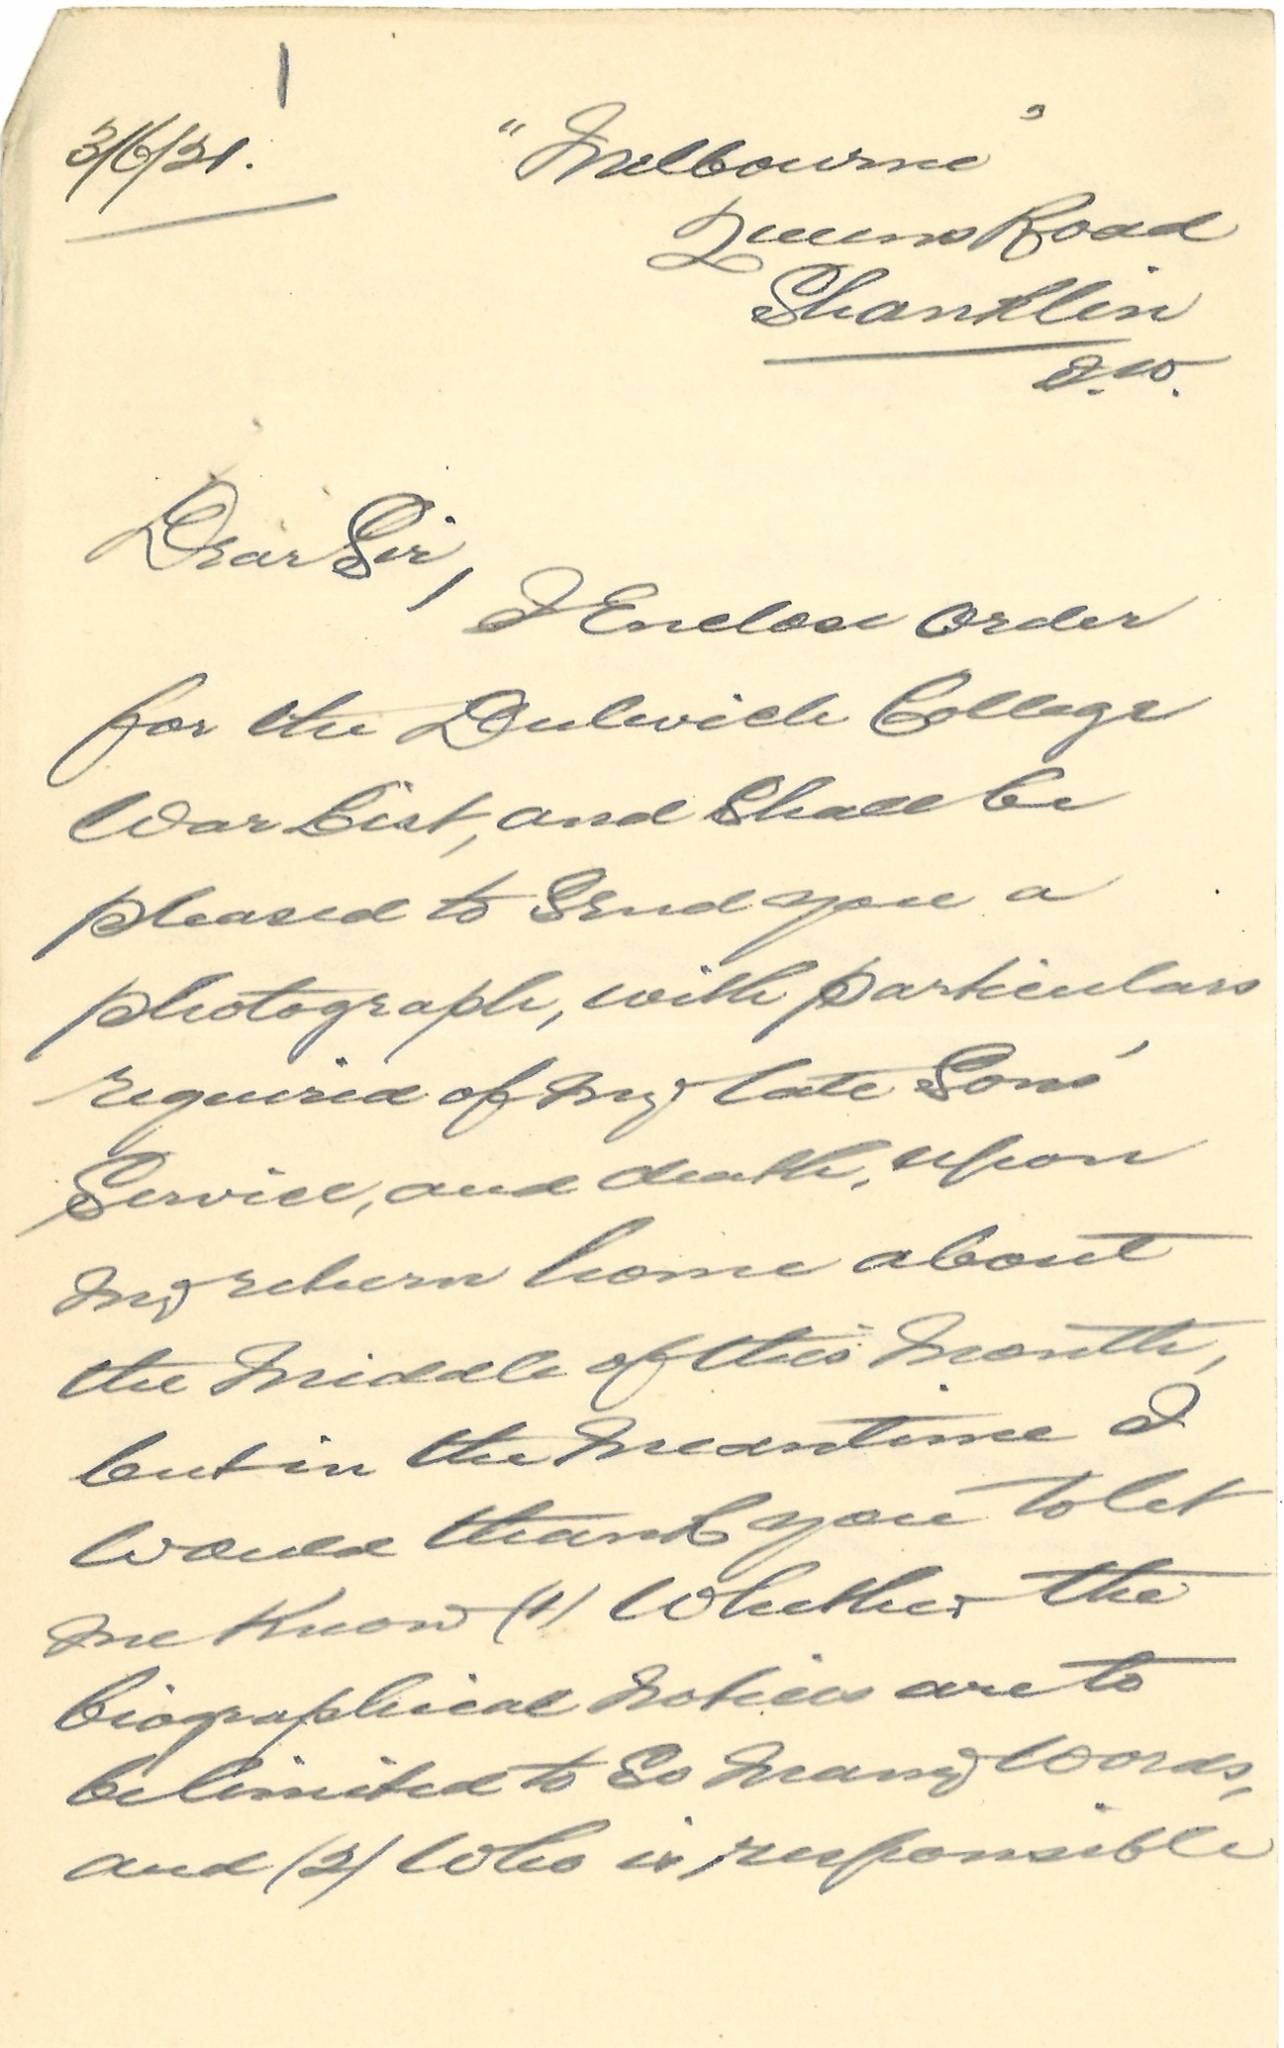 1
3/6/21.
"Melbourne"
Queens Road
Shanklin
I.W.
Dear Sir,
I Enclose order
for the Dulwich College
War List, and Shall be
pleased to Send you a
photograph, with particulars
required of my late Sons'
Service, and death, upon
my return home about
the Middle of this Month,
but in the Meantime I
Would thank you to let
me Know (1) Whether the
biographical Notices are to
be limited to So Many Words,
and (2) Who is responsible